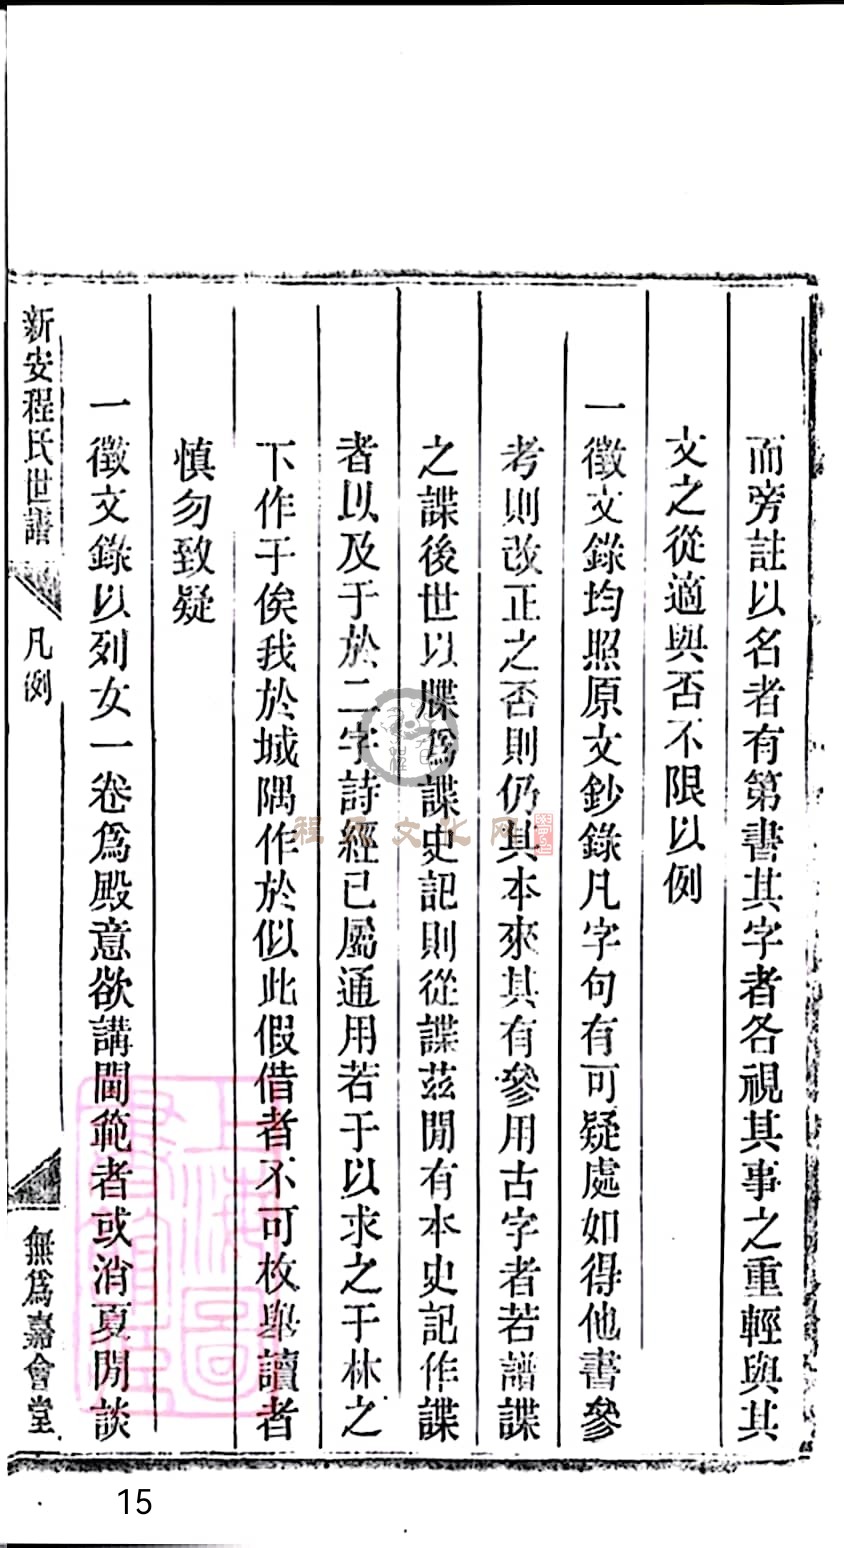 而旁註以名者有第書其字者各視其事之重輕與其
文之從適與否不限以例
一徵文錄均照原文鈔錄凡字句有可疑處如得他書參
考則改正之否則仍其本來其有參用古字者若譜諜
之諜後世以牒爲諜史記則從諜茲閒有本史記作諜
者以及于於二字詩經已屬通用若于以求之于林之
下作于俟我於城隅作於似此假借者不可枚舉讀者
慎勿致疑
一徵文錄以列女一卷爲殿意欲講閫範者或消夏閒談
新安程氏世譜
凡例
無爲嘉會堂
程氏文化网
上海圖書館藏
15